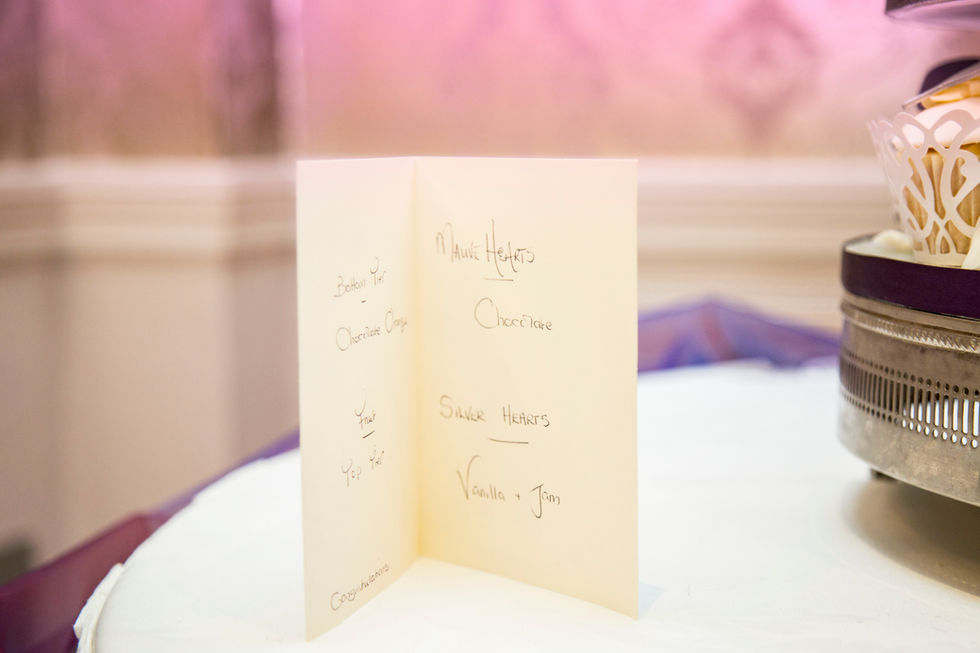 Bottom Tier
Chocolate Orange
Fruit
Top Tier
Congratulations.
Mauve Hearts
Chocolate
Silver Hearts
Vanilla + Jam